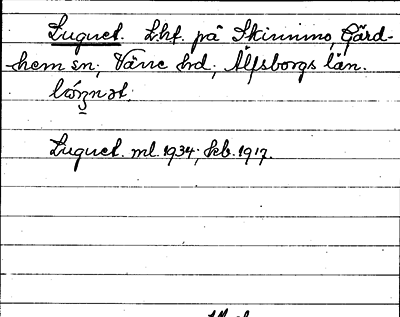 Lugnet. Lht. på Skinnmo, Gärd-
hem sn; Väne hd; Älfsborgs län.
Lugnet. ml. 1934; kb. 1917.